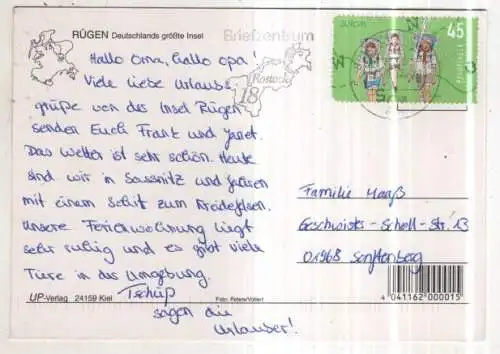 RÜGEN Deutschlands größte Insel
Hallo Oma, hallo Opa!
Viele liebe Urlaubs-
grüße von des Insel Rügen
senden Euch Frank und Janet.
Das Wetter ist sehr schön. Heute
sind wir in Sassnitz und fahren
mit einem Schif zum Kreidefelsen.
Unsere Ferienwohnung liegt
sehr ruhig und es gibt viele
Tiere in des Umgebung.
Tschüß
sagen die
Urlauber!
Briefzentrum
Rostock
18
EUROPA
45
Familie Maaß
Geschwister-Scholl-Str. 13
01968 Senftenberg
UP-Verlag 24159 Kiel
Foto: Peters/Vollert
4 041162 000015